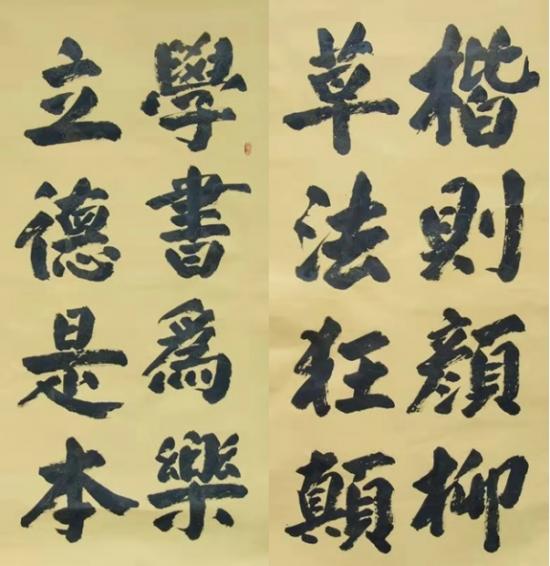 楷則顔柳
草法狂顛
學書爲樂
立德是本